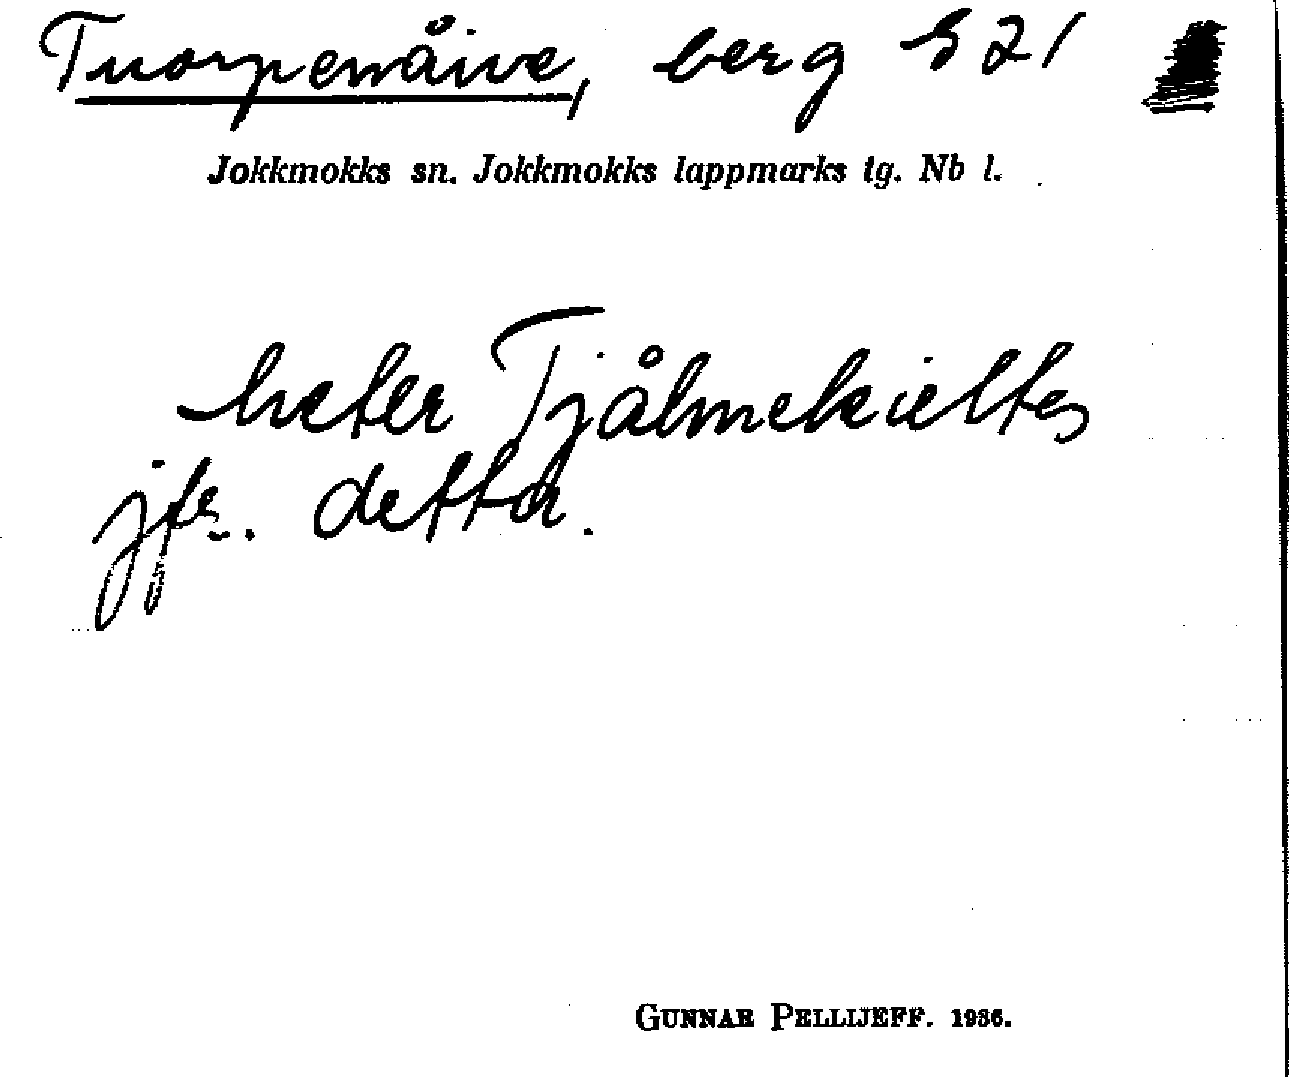 Tuorpenåive, berg 521
Jokkmokks sn. Jokkmokks lappmarks tg. Nb l.
heter Tjålmekieltes
jfr. detta.
GUNNAR PELLIJEFF. 1936.